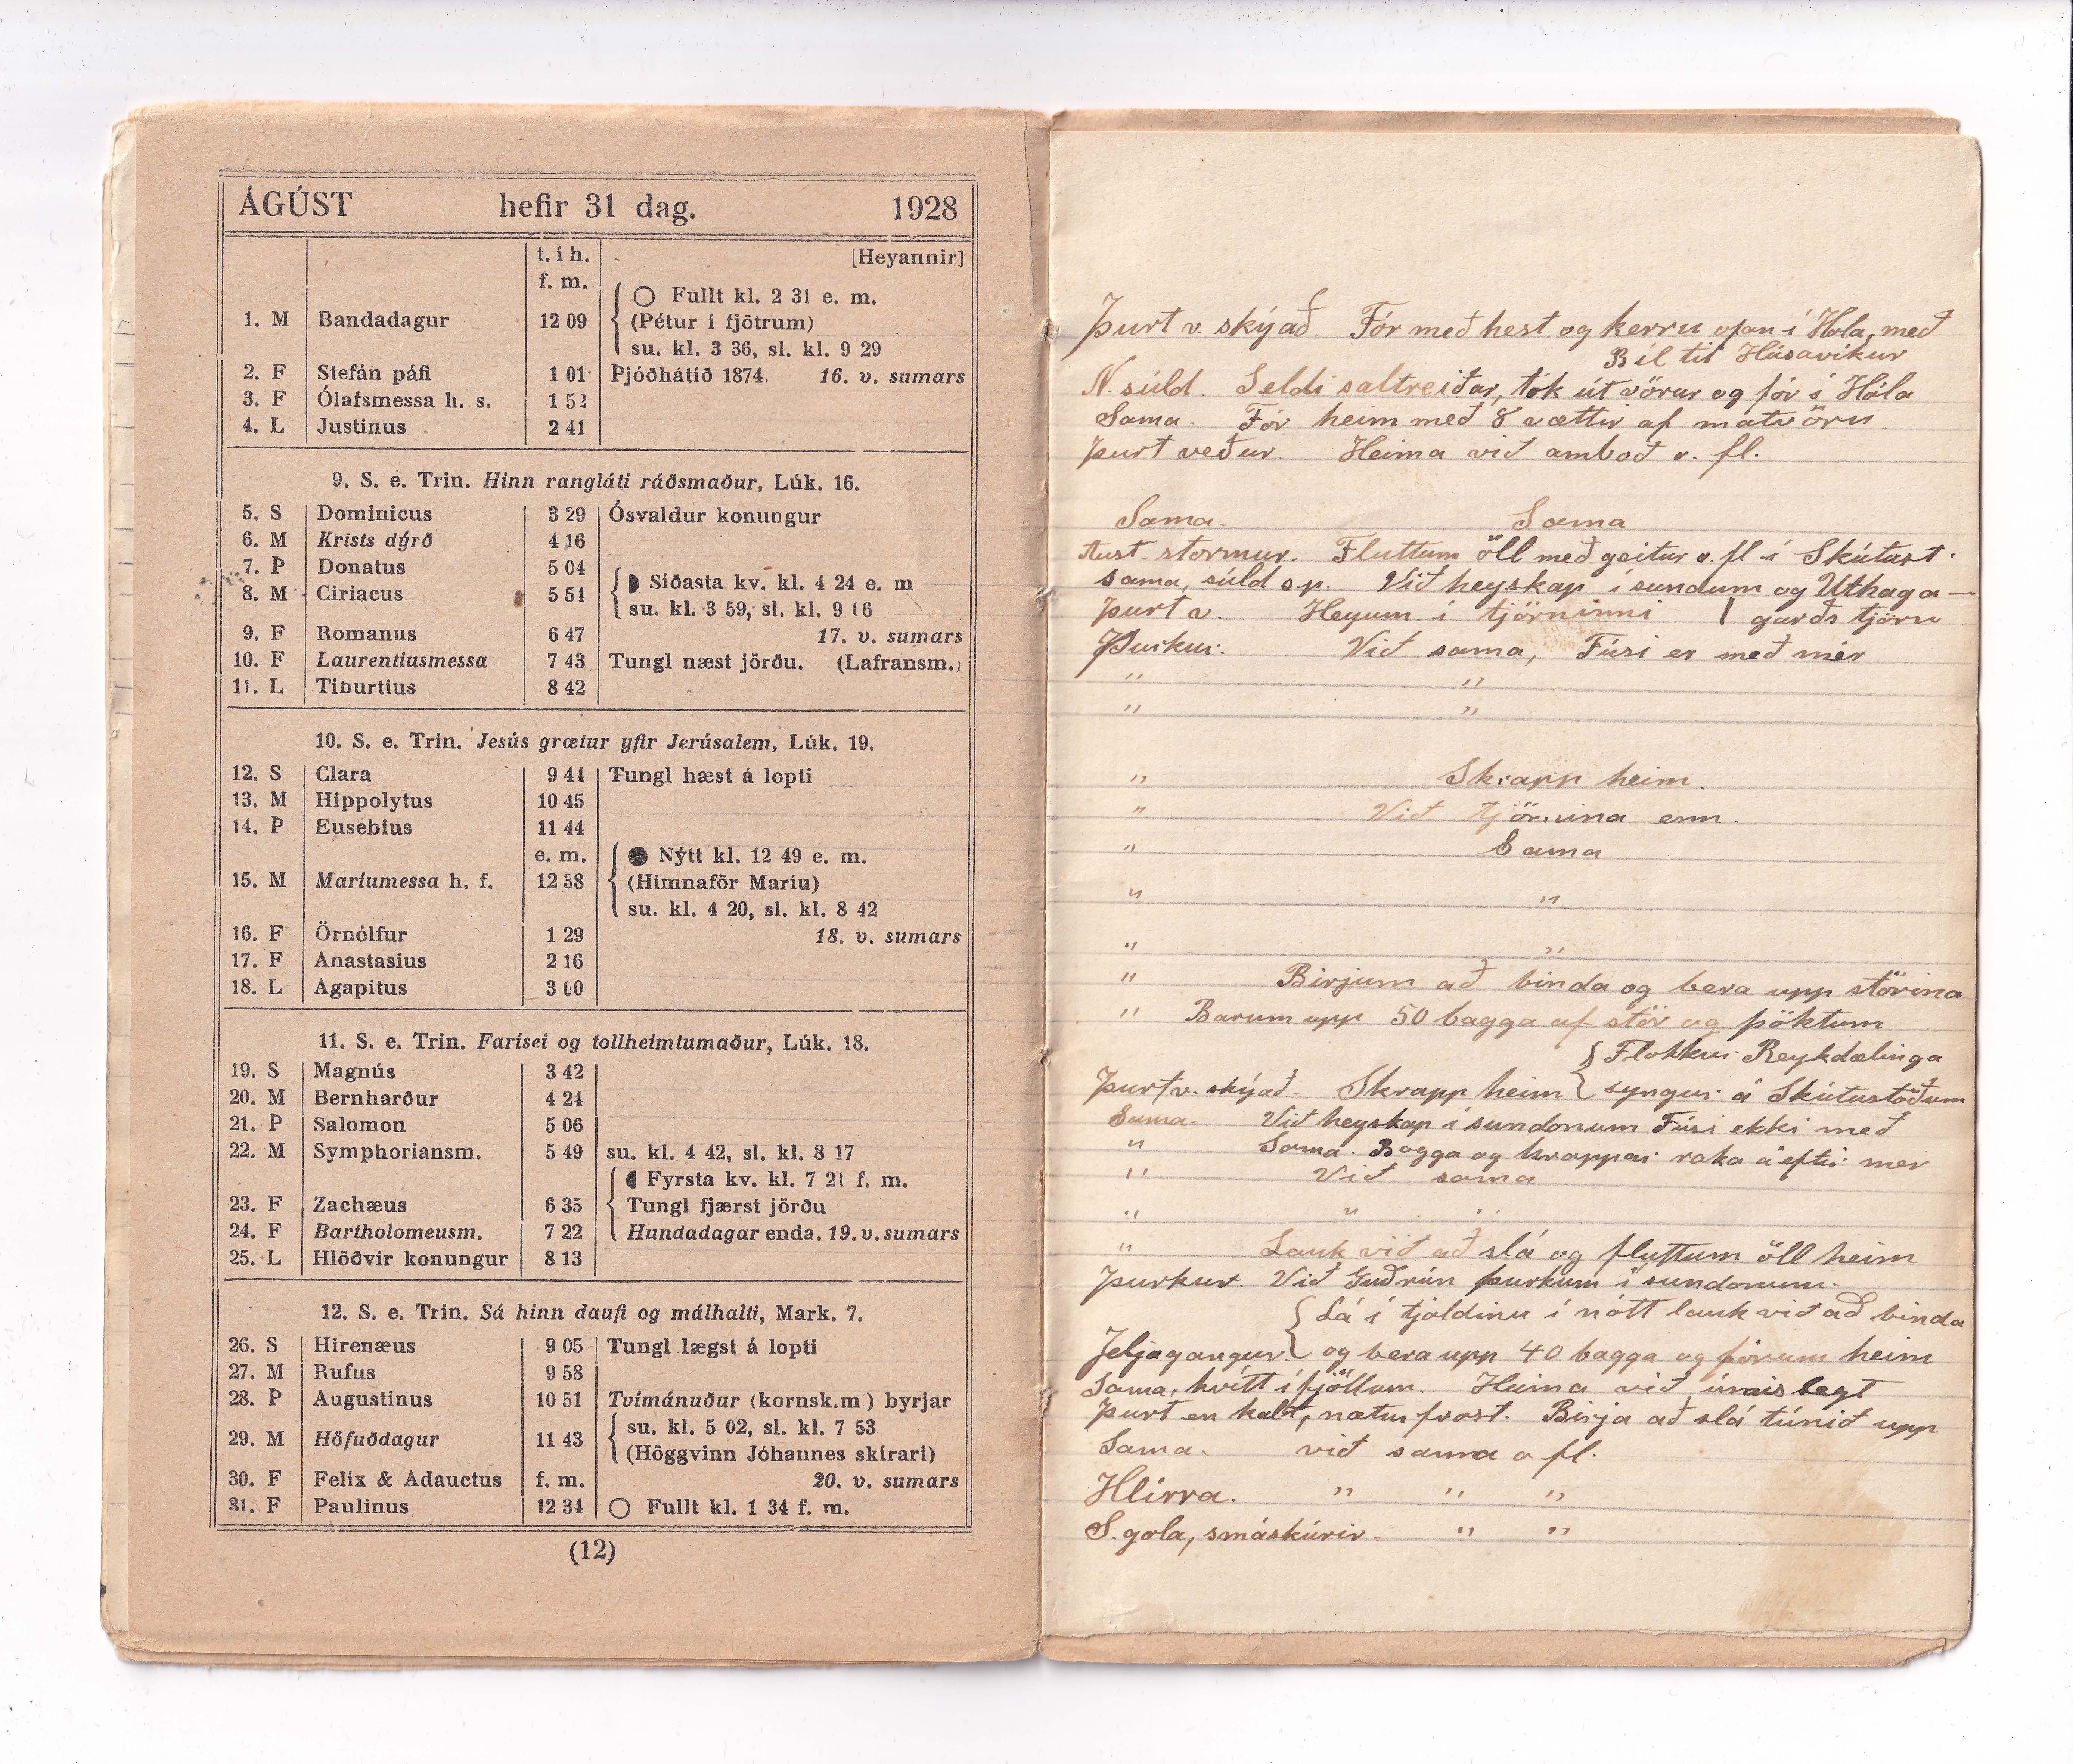 ÁGÚST hefir 31 dag. 1928
t. í h. [Heyannir]
f. m.
○ Fullt kl. 2 31 e. m.
1. M Bandadagur 12 09 (Pétur í fjötrum)
su. kl. 3 36, sl. kl. 9 29
2. F Stefán páfi 1 01 Þjóðhátíð 1874. 16. v. sumars
3. F Ólafsmessa h. s. 1 52
4. L Justinus 2 41
9. S. e. Trin. Hinn rangláti ráðsmaður, Lúk. 16.
5. S Dominicus 3 29 Ósvaldur konungur
6. M Krists dýrð 4 16
7. Þ Donatus 5 04
Síðasta kv. kl. 4 24 e. m
8. M Ciriacus 5 54
su. kl. 3 59, sl. kl. 9 06
9. F Romanus 6 47 17. v. sumars
10. F Laurentiusmessa 7 43 Tungl næst jörðu. (Lafransm.)
11. L Tiburtius 8 42
10. S. e. Trin. Jesús grætur yfir Jerúsalem, Lúk. 19.
12. S Clara 9 44 Tungl hæst á lopti
13. M Hippolytus 10 45
14. Þ Eusebius 11 44
e. m. ● Nýtt kl. 12 49 e. m.
15. M Maríumessa h. f. 12 38 (Himnaför Maríu)
su. kl. 4 20, sl. kl. 8 42
16. F Örnólfur 1 29 18. v. sumars
17. F Anastasius 2 16
18. L Agapitus 3 00
11. S. e. Trin. Farísei og tollheimtumaður, Lúk. 18.
19. S Magnús 3 42
20. M Bernharður 4 24
21. Þ Salomon 5 06
22. M Symphoriansm. 5 49 su. kl. 4 42, sl. kl. 8 17
Fyrsta kv. kl. 7 21 f. m.
23. F Zachæus 6 35 Tungl fjærst jörðu
24. F Bartholomeusm. 7 22 Hundadagar enda. 19. v. sumars
25. L Hlöðvir konungur 8 13
12. S. e. Trin. Sá hinn daufi og málhalti, Mark. 7.
26. S Hirenæus 9 05 Tungl lægst á lopti
27. M Rufus 9 58
28. Þ Augustinus 10 51 Tvímánuður (kornsk.m.) byrjar
su. kl. 5 02, sl. kl. 7 53
29. M Höfuðdagur 11 43
(Höggvinn Jóhannes skírari)
30. F Felix & Adauctus f. m. 20. v. sumars
31. F Paulinus 12 34 ○ Fullt kl. 1 34 f. m.
(12)
Þurt v. skýað Fór með hest og kerru ofan í Hola, með
Bíl til Húsavíkur
N. súld. Seldi saltreiðar, tók út vörur og fór í Hóla
Sama. Fór heim með 8 vættir af matvöru.
Þurt veður. Heima við amboð o. fl.
Sama. Sama
Aust. stormur. Fluttum öll með geitur o. fl í Skútust.
sama, súld sp. Við heyskap í sundum og Uthaga—
Þurt v. Heyum í tjörninni | garðs tjörn
Þurkur. Við sama, Fúsi er með mér
" "
" "
" Skrapp heim.
" Við tjörnina enn.
" Sama
" "
" "
" Birjum að binda og bera upp störina
" Barum upp 50 bagga af stör og þöktum
{ Flokkur Reykdælinga
Þurt v. skýað. Skrapp heim { syngur á Skútustöðum
Sama. Við heyskap í sundonum Fúsi ekki með
" Sama. Bogga og krappar raka á eftir mer
" Við sama
" " "
" Lauk við að slá og fluttum öll heim
Þurkur. Við Guðrún þurkum í sundonum.
{ Lá í tjaldinu í nótt lauk við að binda
Jeljagangur. { og bera upp 40 bagga og fórum heim
Sama, hvítt í fjöllum. Heima við ímislegt
Þurt en kalt, nætur frost. Birja að slá túnið upp
Sama. við sama o fl.
Hlirra. " " "
S. gola, smáskúrir. " "